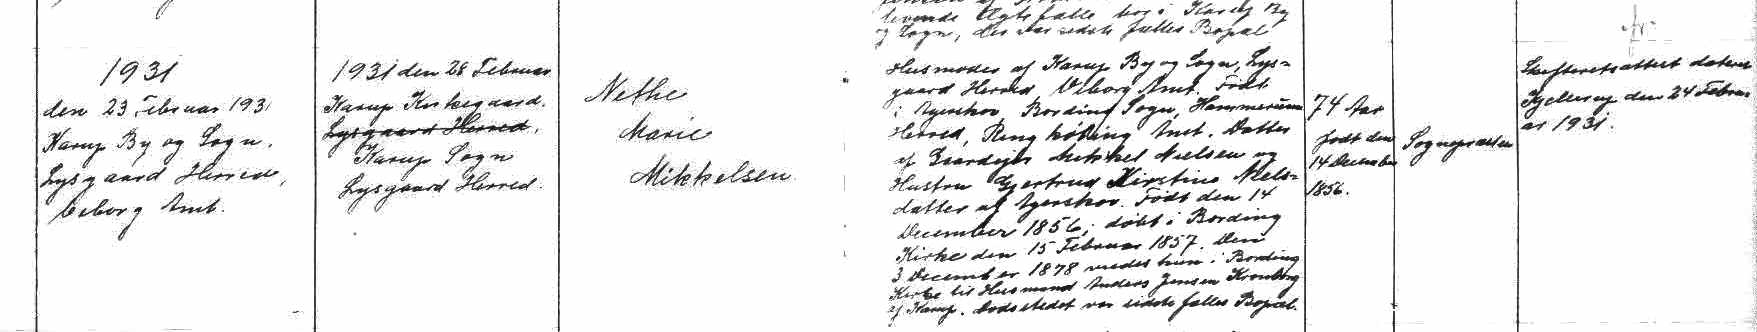 levende Ægtefælle bor i Karup By
og Sogn, der var sidste fælles Bopæl
1931
den 23 Februar 1931
Karup By og Sogn.
Lysgaard Herred,
Viborg Amt.
1931 den 28 Februar
Karup Kirkegaard.
Lysgaard Herred.
Karup Sogn
Lysgaard Herred.
Nethe
Marie
Mikkelsen
Husmoder af Karup By og Sogn, Lys=
gaard Herred Viborg Amt. Født
i Agerskov, Bording Sogn, Hammerum
Herred, Ringkøbing Amt. Datter
af Gaardejer Mikkel Nielsen og
Hustru Gjertrud Kirstine Niels=
datter af Agerskov. Født den 14
December 1856, døbt i Bording
Kirke den 15 Februar 1857. Den
3 December 1878 viedes hun i Bording
Kirke til Husmand Anders Jensen Kronborg
af Karup. Dødsstedet var sidste fælles Bopæl.
74 Aar
født den
14 December
1856.
Sognepræsten
Skifteretsattest dateret
Kjellerup den 24 Febru=
ar 1931.